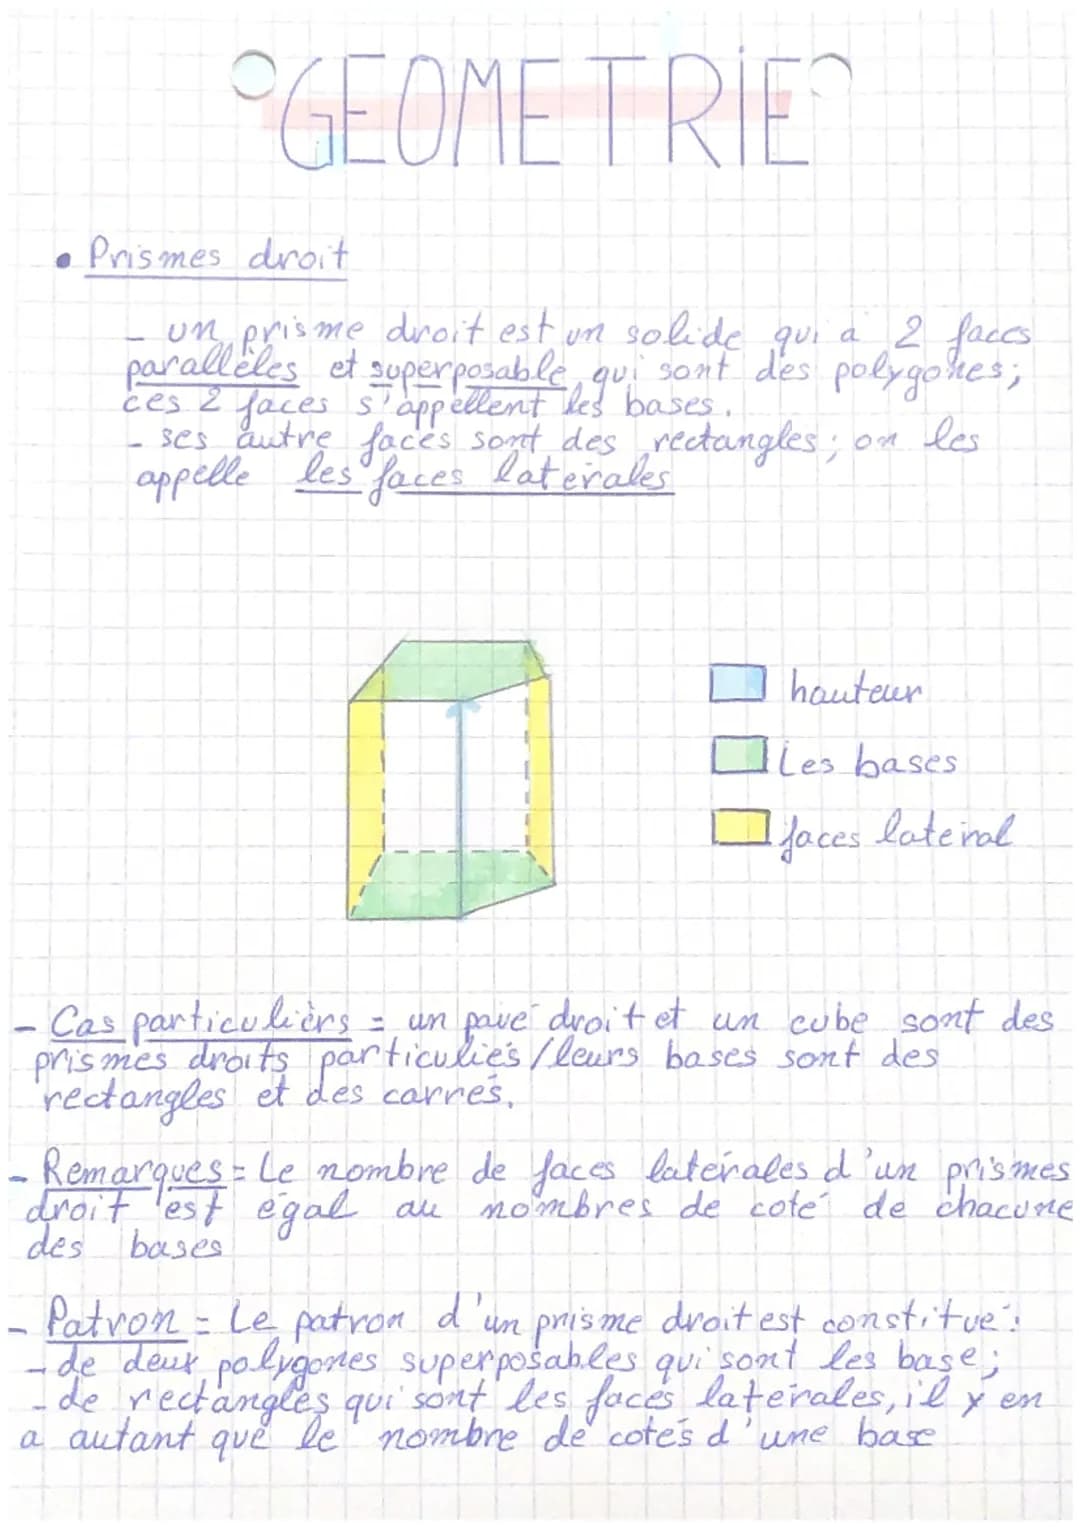 GEOMETRIE
• Prismes droit
- un prisme droit est un solide qui a 2 faces
parallèles et superposable qui sont des polygones;
ces 2 faces s'appellent les bases.
- ses autre faces sont des rectangles; on les
appelle les faces latérales
hauteur
Les bases
faces latéral
- Cas particuliers = un pavé droit et un cube sont des
prismes droits particuliés / leurs bases sont des
rectangles et des carrés.
- Remarques = Le nombre de faces latérales d'un prismes
droit est égal au nombres de coté de chacune
des bases
- Patron = Le patron d'un prisme droit est constitué:
- de deux polygones superposables qui sont les base;
- de rectangles qui sont les faces latérales, il y en
a autant que le nombre de cotés d'une base